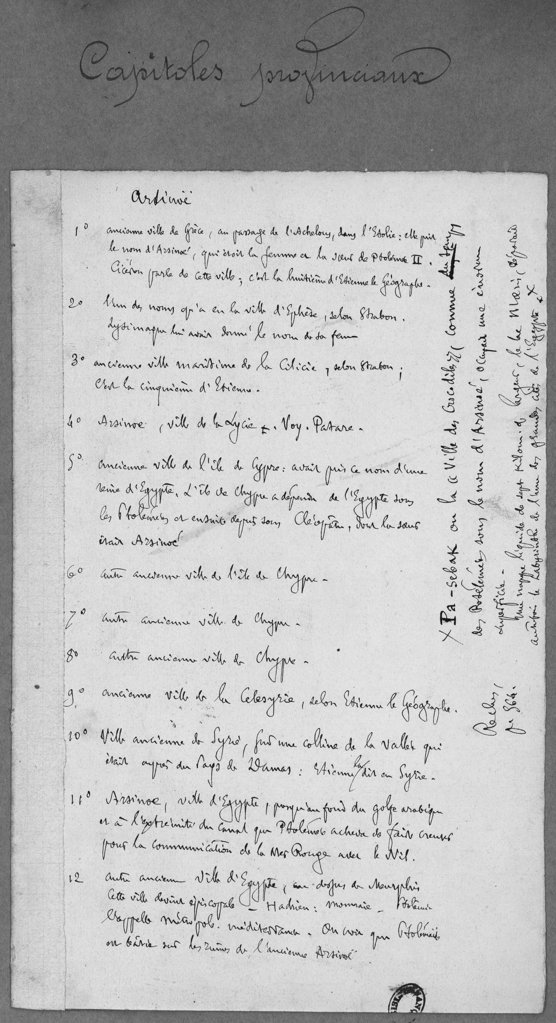 Capitoles provinciaux
Arsinoë
1° ancienne ville de Grèce, au passage de l'Achelous, dans l'Etolie : elle prit
le nom d'Arsinoé, qui était la femme et la sœur de Ptolémée II.
Cicéron parle de cette ville ; c'est la huitième d'Etienne le Géographe.
2° L'un des noms qu'a eu la ville d'Ephèse, selon Strabon.
Lysimaque lui avait donné le nom de sa femme
3° ancienne ville maritime de la Cilicie, selon Strabon ;
C'est la cinquième d'Etienne.
4° Arsinoe, ville de la Lycie. Voy. Patare.
5° ancienne ville de l'île de Cypre : avait pris ce nom d'une
reine d'Egypte. L'île de Chypre a dépendu de l'Egypte sous
les Ptolémées et ensuite depuis sous Cléopâtre, dont la sœur
était Arsinoé
6° autre ancienne ville de l'île de Chypre.
7° autre ancienne ville de Chypre.
8° autre ancienne ville de Chypre.
9° ancienne ville de la Célésyrie, selon Etienne le Géographe.
10° Ville ancienne de Syrie, sur une colline de la vallée qui
était auprès du pays de Damas : Etienne la dit en Syrie.
11° Arsinoe, ville d'Egypte, presqu'au fond du golfe arabique
et à l'extrémité du canal que Ptolémée acheva de faire creuser
pour la communication de la Mer Rouge avec le Nil.
12 autre ancienne ville d'Egypte, au-dessus de Memphis
Cette ville devint épiscopale – Hadrien : monnaie – Ptolémée
l'appelle métropole méditerranée. On croit que Ptolémaïs
est bâtie sur les ruines de l'ancienne Arsinoé
× Pa-Sebak ou la Ville des Crocodiles, connue du temps
des Ptolémées sous le nom d'Arsinoé, occupait une
superficie.
Une nappe liquide de sept kilom. de largeur, le lac Mœris, séparait
autrefois le Labyrinthe de l'une des grandes cités de l'Egypte ×
Reclus,